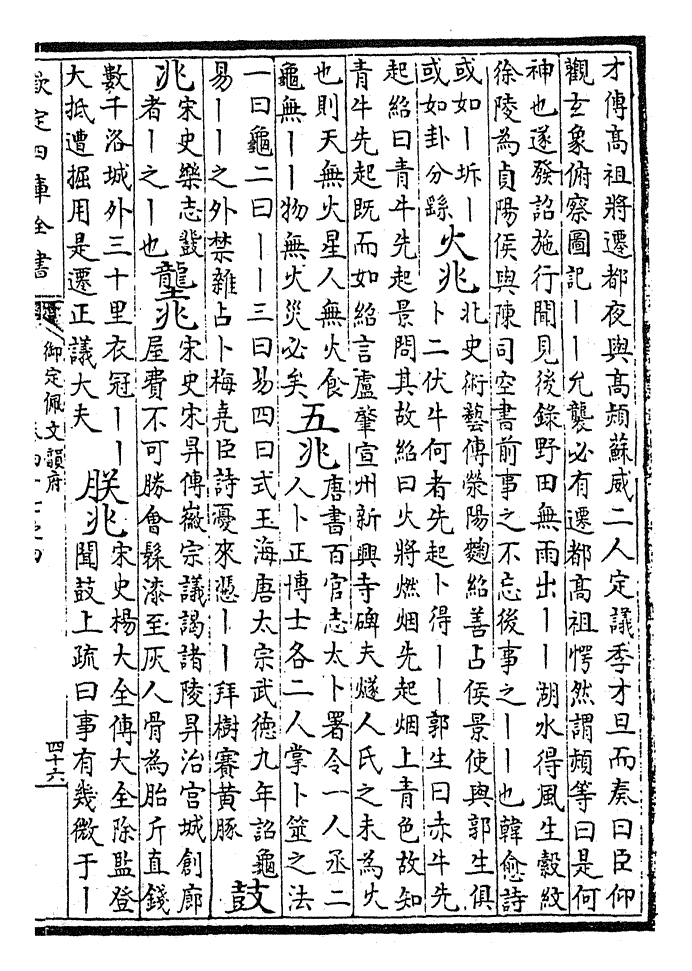 才傳髙祖將遷都夜與髙熲蘇威二人定議季才旦而奏曰臣仰
觀玄象俯察圖記丨丨允襲必有遷都髙祖愕然謂熲等曰是何
神也遂發詔施行聞見後錄野田無雨出丨丨湖水得風生縠紋
徐陵為貞陽侯與陳司空書前事之不忘後事之丨丨也韓愈詩
或如丨坼丨
或如卦分繇
火兆
北史術藝傳滎陽麴紹善占侯景使與郭生俱
卜二伏牛何者先起卜得丨丨郭生曰赤牛先
起紹曰青牛先起景問其故紹曰火將燃烟先起烟上青色故知
青牛先起既而如紹言盧肇宣州新興寺碑夫燧人氏之未為火
也則天無火星人無火食
龜無丨丨物無火災必矣
五兆
唐書百官志太卜署令一人丞二
人卜正博士各二人掌卜筮之法
一曰龜二曰丨丨三曰易四曰式玉海唐太宗武德九年詔龜
易丨丨之外禁雜占卜梅堯臣詩憂來憑丨丨拜樹賽黄豚
鼓
兆
宋史樂志鼓
者丨之丨也
壟兆
宋史宋昇傳徽宗議謁諸陵昇治宫城創廊
屋費不可勝會髹漆至灰人骨為胎斤直錢
數千洛城外三十里衣冠丨丨
大抵遭掘用是遷正議大夫
朕兆
宋史楊大全傳大全除監登
聞鼓上疏曰事有幾微于丨
欽定四庫全書
御定佩文韻府
四十六